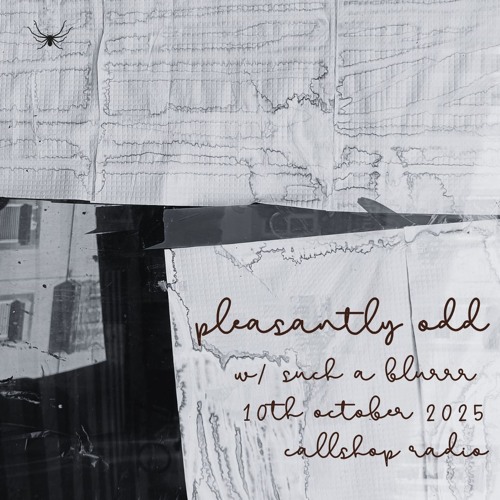 pleasantly odd
w/ such a blurrr
10th october 2025
callshop radio